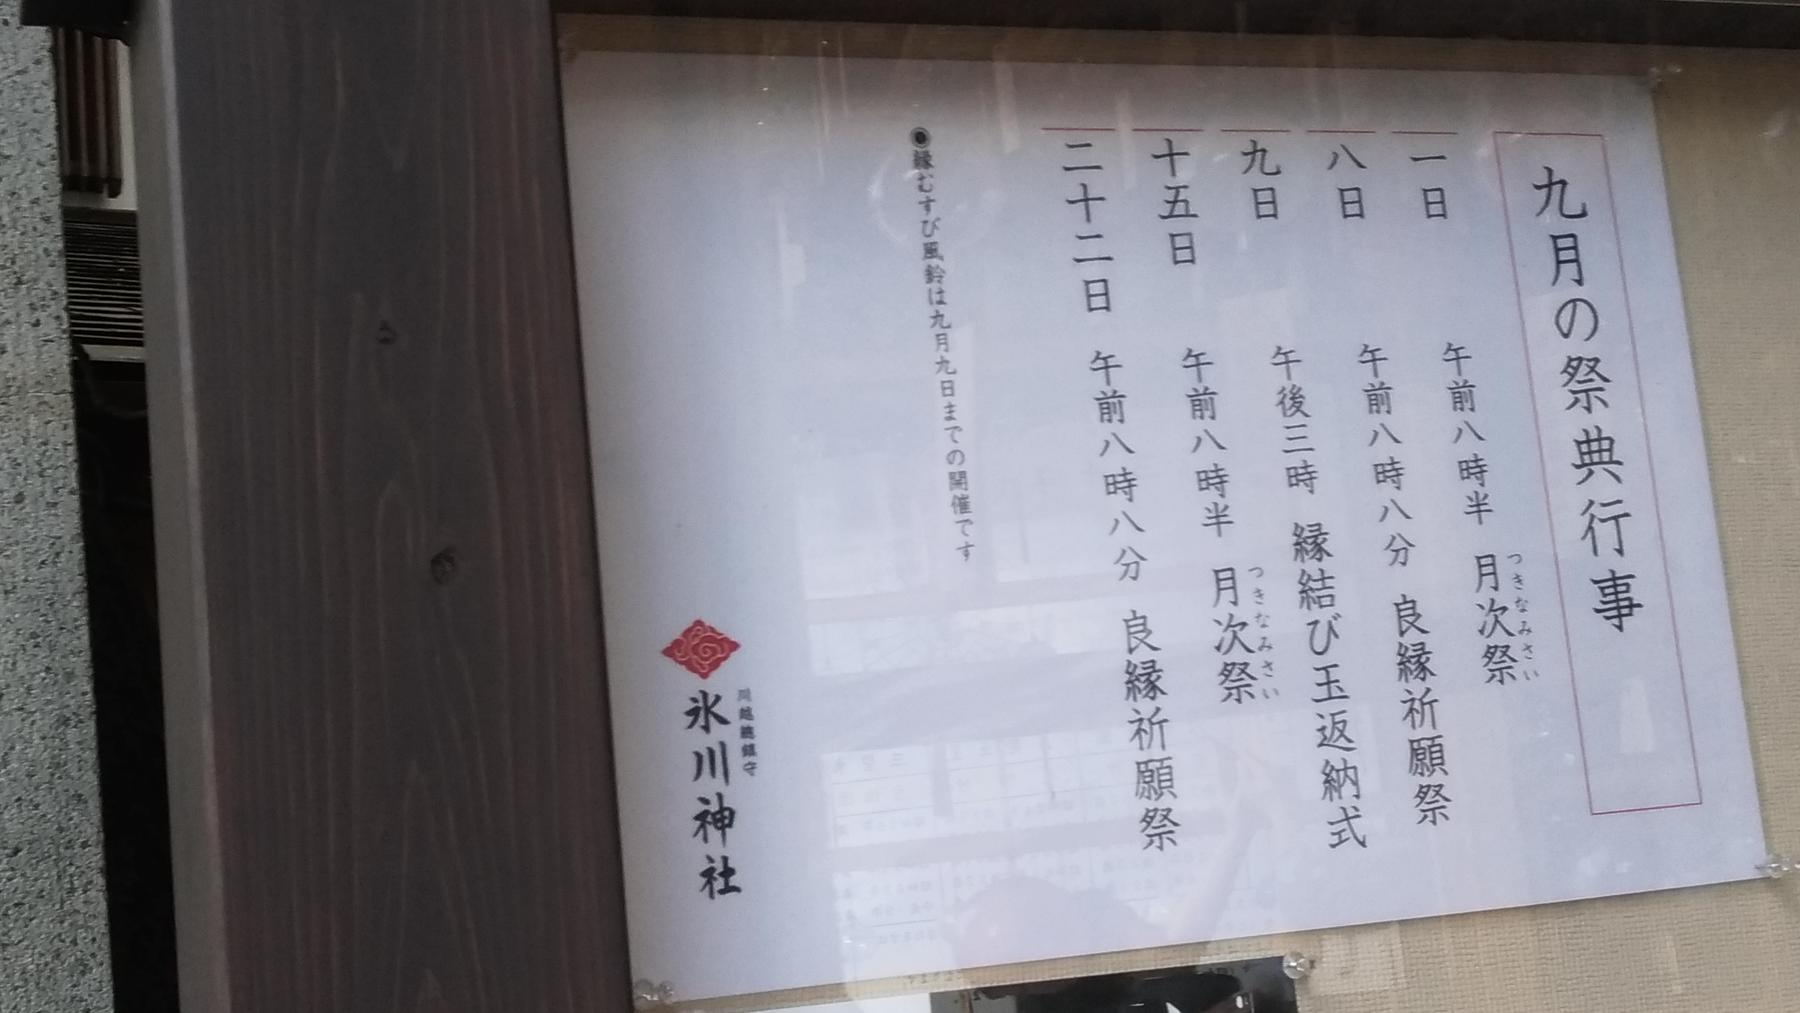 九月の祭典行事
一日 午前八時半 月次祭
つきなみさい
八日 午前八時八分 良縁祈願祭
九日 午後三時 縁結び玉返納式
十五日 午前八時半 月次祭
つきなみさい
二十二日 午前八時八分 良縁祈願祭
◉縁むすび風鈴は九月九日までの開催です
川越総鎮守
氷川神社